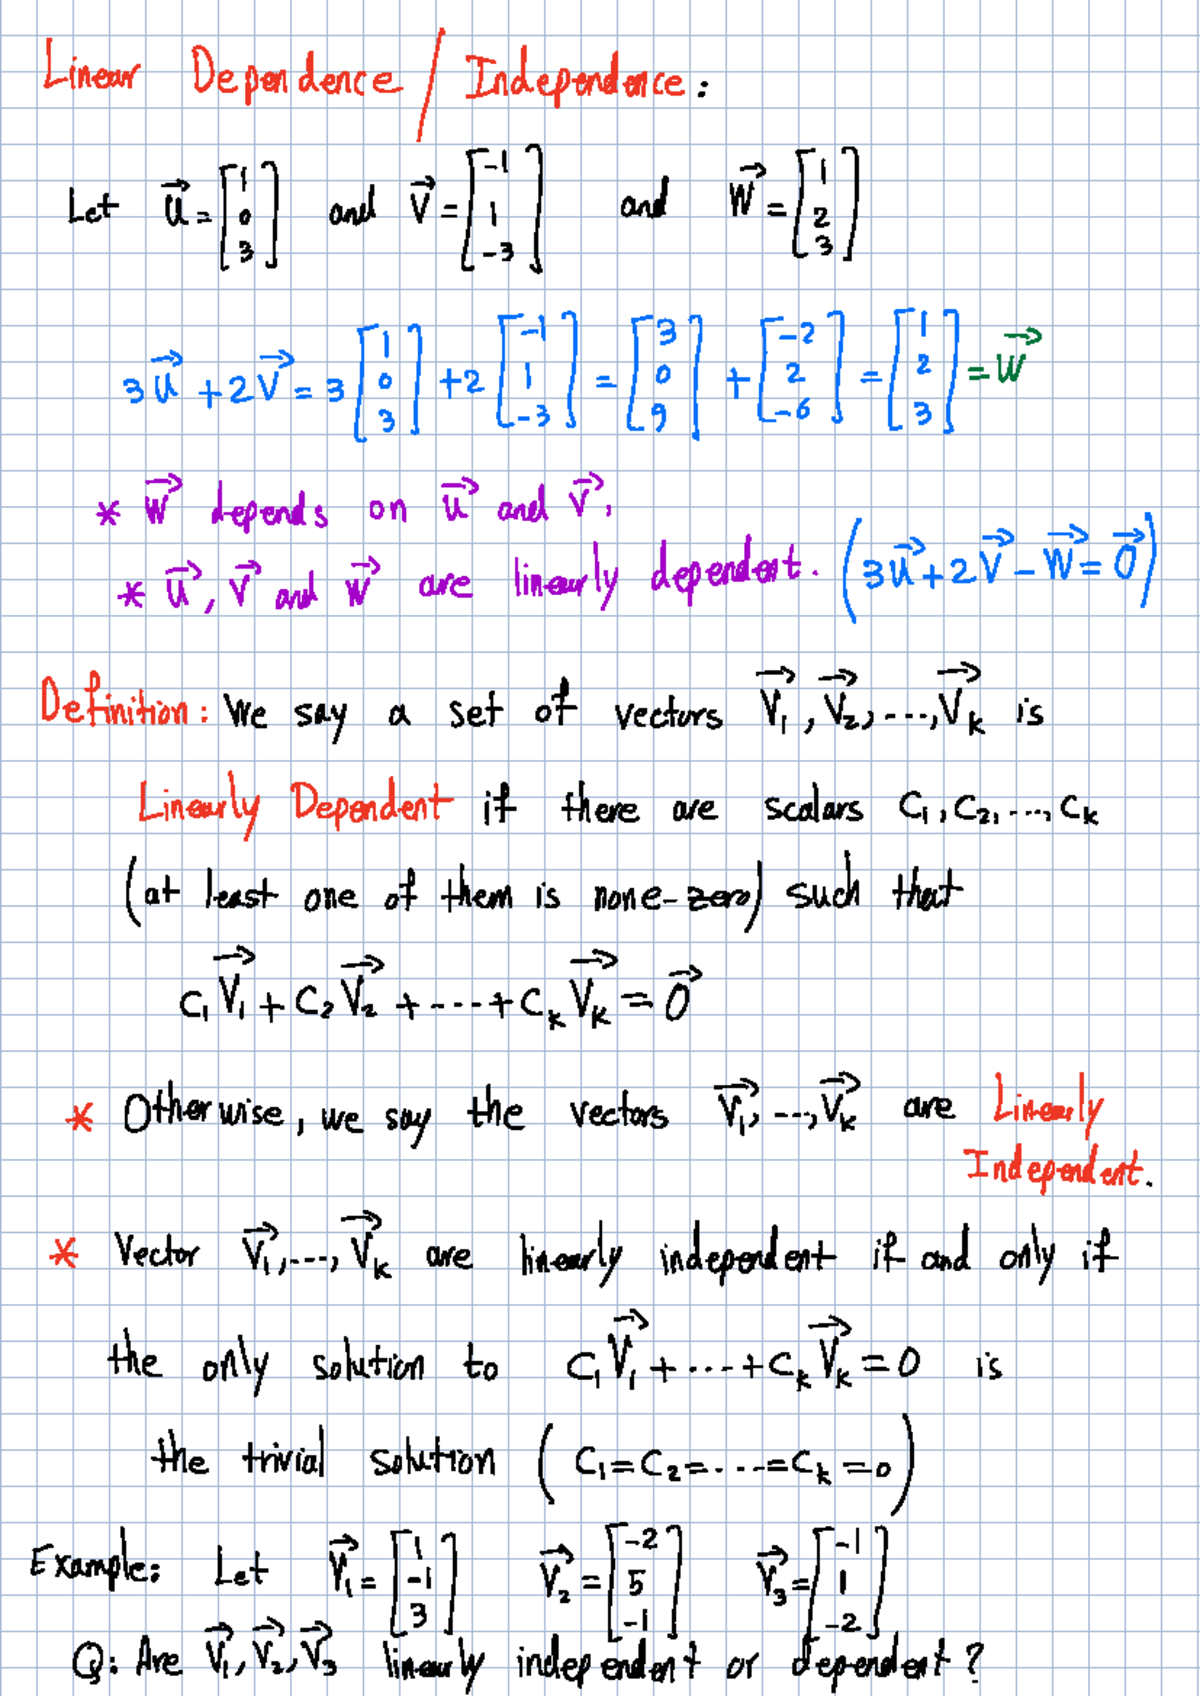 Linear Dependence / Independence:
Let u⃗ = [1 0 3] and v⃗ = [-1 1 -3] and w⃗ = [1 2 3]
3u⃗ + 2v⃗ = 3[1 0 3] + 2[-1 1 -3] = [3 0 9] + [-2 2 -6] = [1 2 3] = w⃗
* w⃗ depends on u⃗ and v⃗.
* u⃗, v⃗ and w⃗ are linearly dependent. (3u⃗ + 2v⃗ - w⃗ = 0⃗)
Definition: We say a set of vectors v⃗₁, v⃗₂, ..., v⃗ₖ is
Linearly Dependent if there are scalars c₁, c₂, ..., cₖ
(at least one of them is none-zero) such that
c₁v⃗₁ + c₂v⃗₂ + ---- + cₖv⃗ₖ = 0⃗
* Otherwise, we say the vectors v⃗₁, --, v⃗ₖ are Linearly
Independent.
* Vector v⃗₁, ---, v⃗ₖ are linearly independent if and only if
the only solution to c₁v⃗₁ + ---- + cₖv⃗ₖ = 0 is
the trivial solution (c₁ = c₂ = ---- = cₖ = 0)
Example: Let v⃗₁ = [1 -1 3] v⃗₂ = [-2 5 -1] v⃗₃ = [-1 1 -2]
Q: Are v⃗₁, v⃗₂, v⃗₃ linearly independent or dependent?